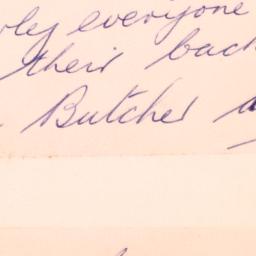 everyone
their back
Butcher